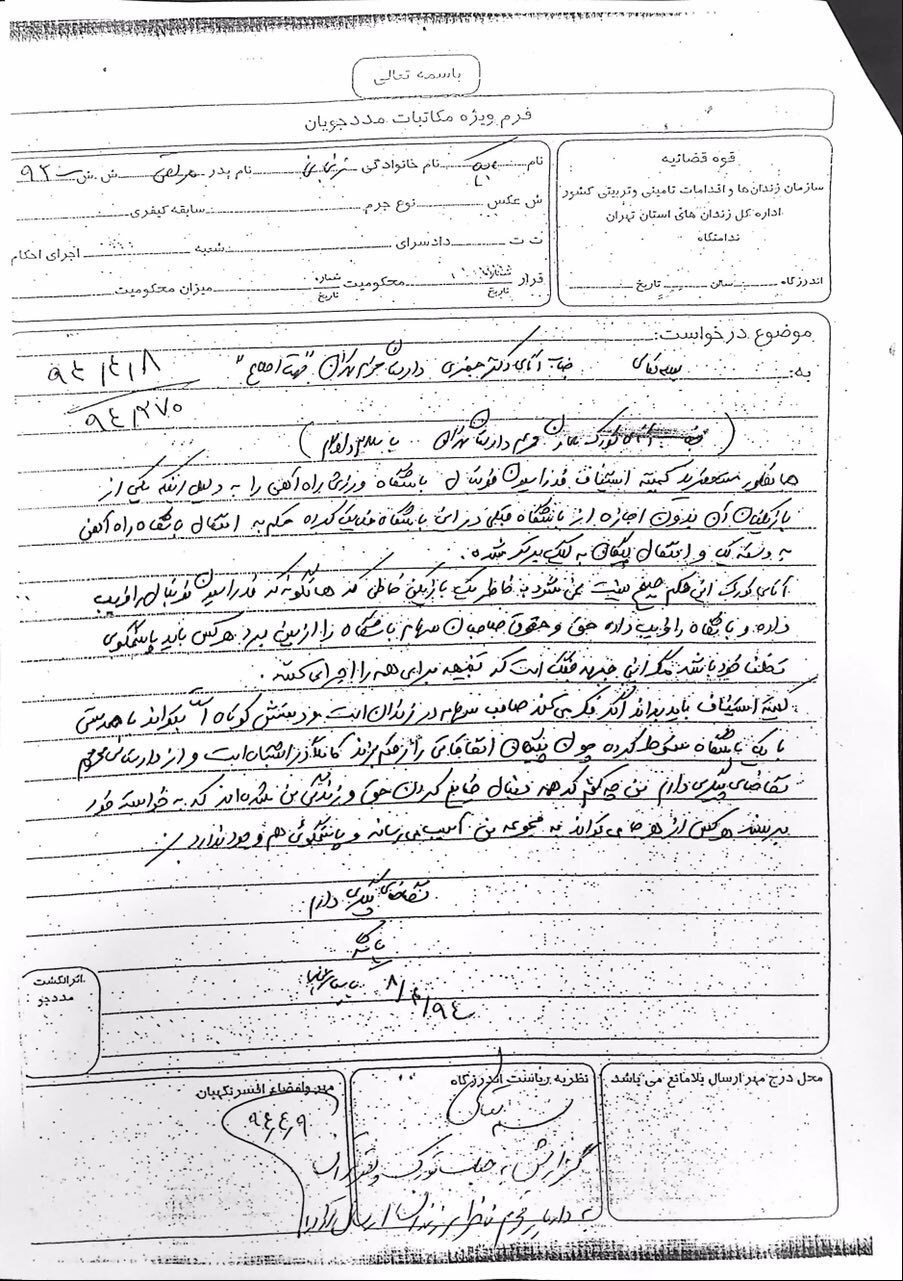 باسمه تعالی
فرم ویژه مکاتبات مددجویان
قوه قضائیه
سازمان زندان‌ها و اقدامات تامینی و تربیتی کشور
اداره کل زندان های استان تهران
ندامتگاه
اندرزگاه سالن تاریخ
نام بابک نام خانوادگی زنجانی نام پدر مرتضی ش ش ۹۲۰
ش عکس نوع جرم سابقه کیفری
ت ت دادسرای شعبه اجرای احکام
قرار شماره تاریخ محکومیت شماره تاریخ میزان محکومیت
موضوع درخواست:
به: بسمه تعالی جناب آقای دکتر جعفری دادستان محترم تهران "جهت اطلاع" ۹۴/۴/۸
۹۴/۲۷۰
( جناب آقای تورک معاون محترم دادستان تهران با سلام و احترام )
همانطور مستحضرید کمیته استیناف فدراسیون فوتبال باشگاه ورزشی راه آهن را به دلیل اینکه یکی از
بازیکنان آن بدون اجازه از باشگاه قبلی در این باشگاه بازی کرده حکم به انتقال باشگاه راه آهن
به دسته یک و انتقال پیکان به لیگ برتر شده.
آقای تورک این حکم صحیح نیست نمی شود به خاطر یک بازیکن خاطی که همانگونه که فدراسیون فوتبال را فریب
داده و باشگاه را فریب داده حق و حقوق صاحبان سهام باشگاه را از بین برد هرکس باید پاسخگوی
تخلف خود باشد مگر این جبهه جنگ است که تنبیه برای همه را اجرا می کنند.
کمیته استیناف باید بداند اگر فکر می کند صاحب سهام در زندان است و دستش کوتاه است بتواند با همدستی
با یک باشگاه سقوط کرده چون پیکان اتفاقاتی را رقم بزند کاملاً در اشتباه است و از دادستانی محترم
تقاضای پیگیری دارم من چه کنم که همه دنبال ضایع کردن حق و زندگی من شده‌اند که به خواسته خود
برسند هرکس از هر جا می تواند به مجموعه من آسیب می رساند و پاسخگوئی هم وجود ندارد
تقاضای پیگیری دارم
با تشکر
بابک زنجانی
۹۴/۴/۸
اثر انگشت
مددجو
محل درج مهر ارسال بلامانع می باشد
نظریه ریاست اندرزگاه
بسمه تعالی
گزارش به جناب تورک
به دادیار محترم ناظر زندان ارسال گردد
مهر و امضاء افسر نگهبان
۹۴/۴/۹